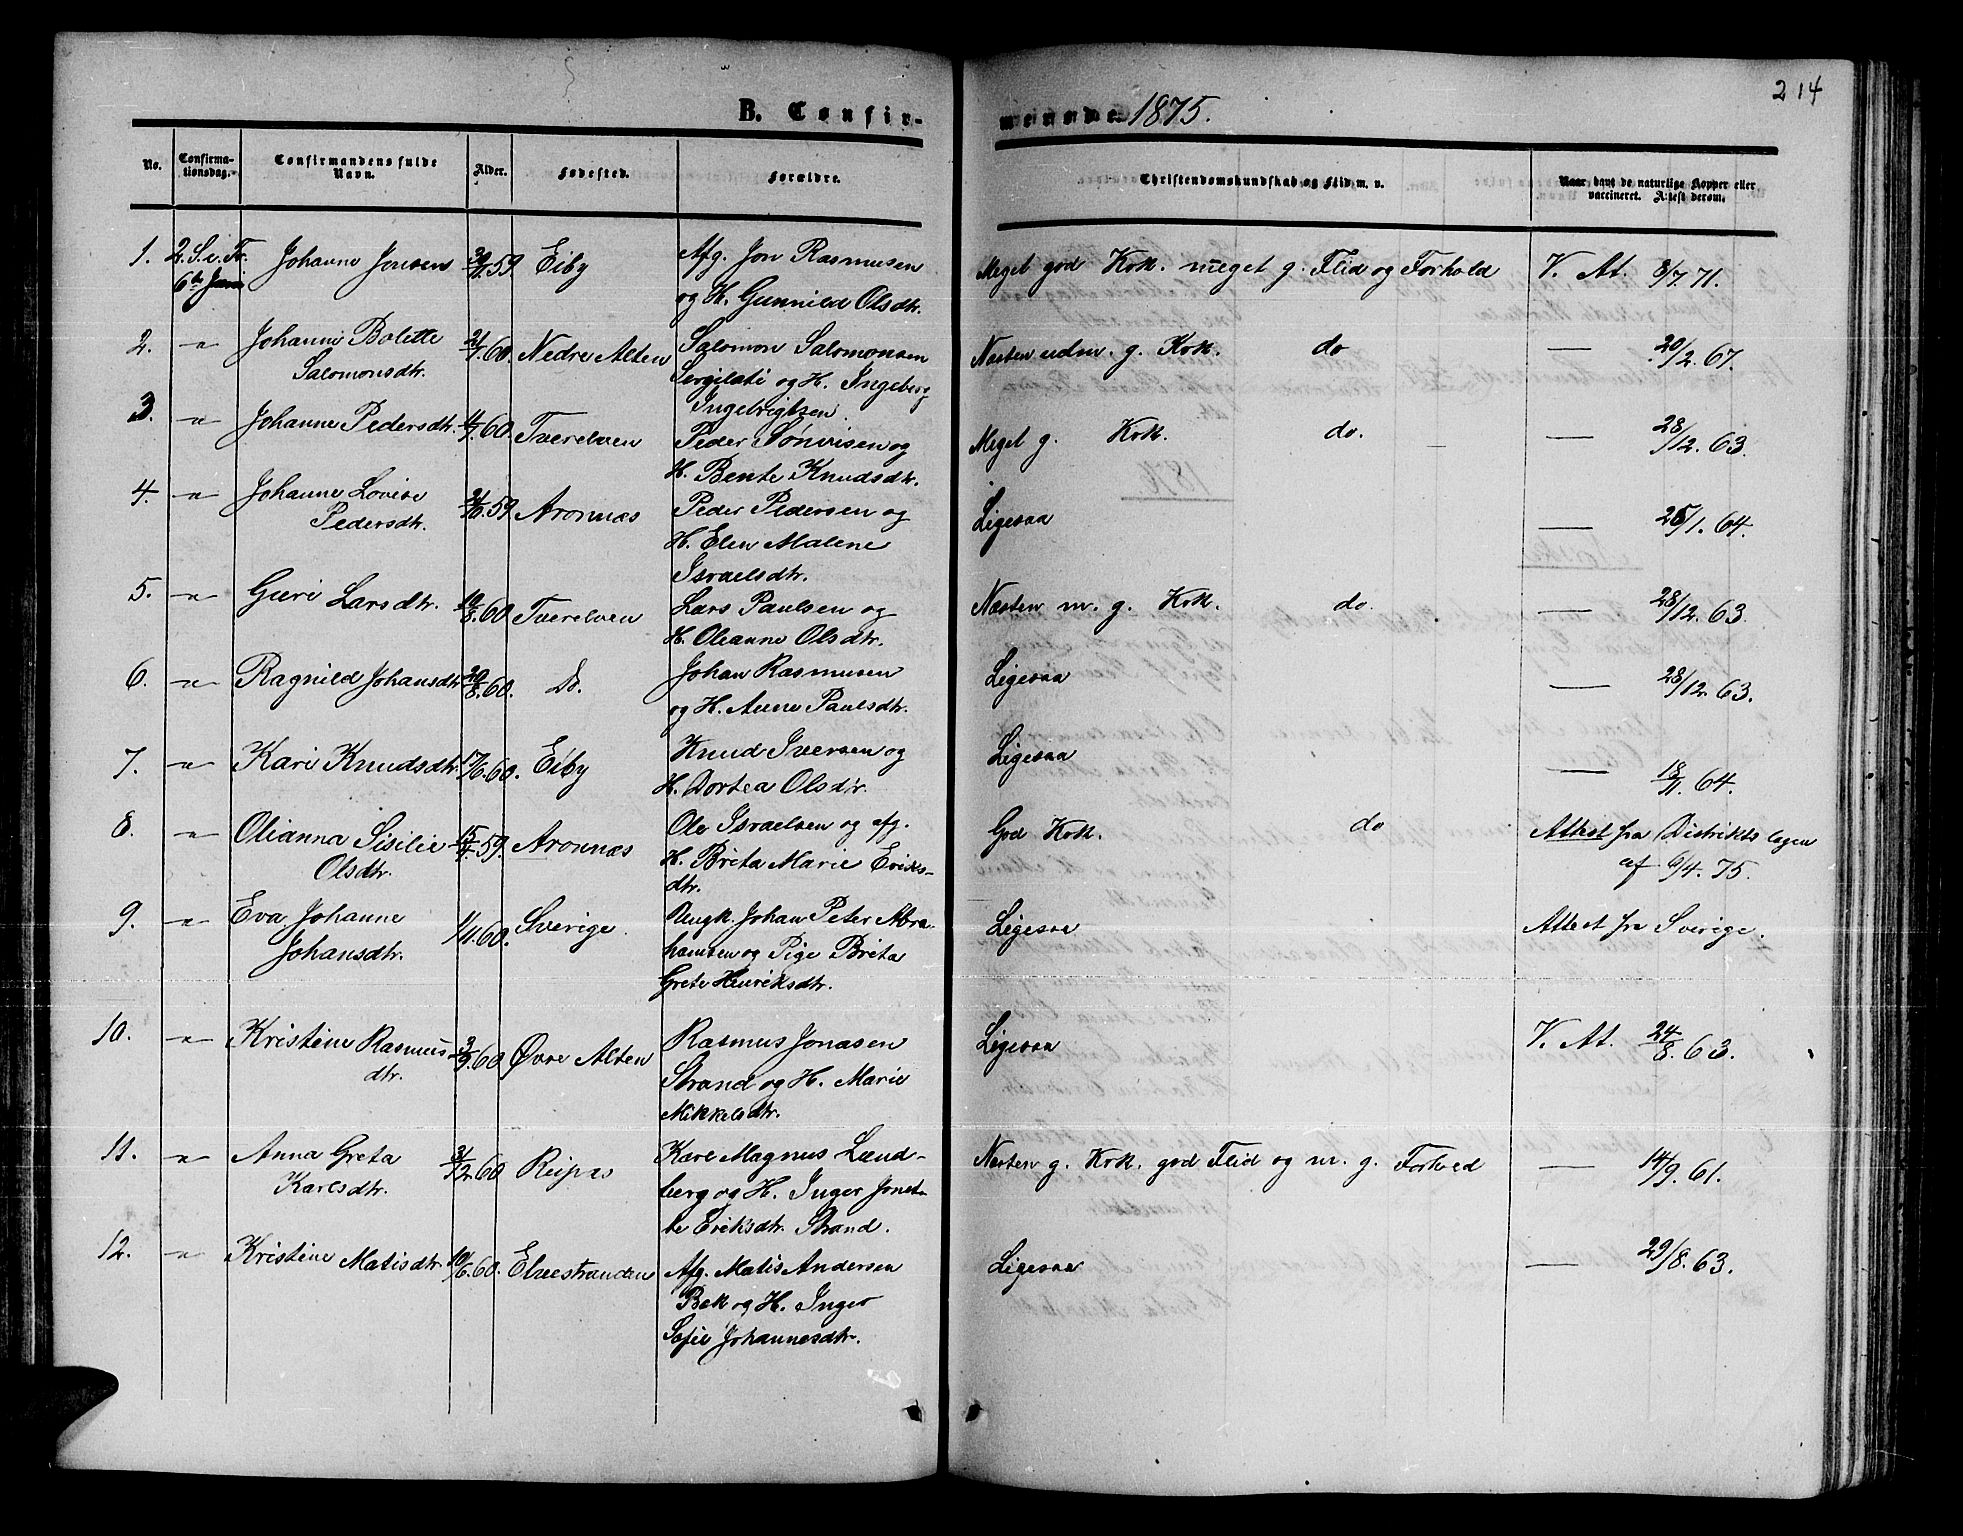 214
B. Confirmerede 1875.
No. Confirmationsdag. Confirmandens fulde Navn. Alder. Fødested. Forældre. Christendomskundskab og Flid m. v. Naar havt de naturlige Kopper eller vaccineret. Attest derom.
1. 2. S. e. Tr. Johanne Jonsen 59 Eiby Afg. Jon Rasmusen Meget god Krk. meget g. Flid og Forhold V. At. 8/7. 71.
6te Juni og H. Gunnild Olsdtr.
2. " Johanne Bolette 60. Nedre Alten Salomon Salomonsen Næsten udm. g. Krk. do — 20/2. 67.
Salomonsdtr. og H. Ingeberg
Ingebrigtsen
3. " Johanne Pedersdtr. 60. Tverelven Peder og Meget g. Krk. do. — 28/12. 63.
H. Bente Knudsdtr.
4. " Johanne Lovise 59 Aronnæs Peder Pedersen og Ligesaa — 25/1. 64.
Pedersdtr. H. Elen Malene
Israelsdtr.
5. " Guri Larsdtr. 10/8. 60 Tverelven Lars Paulsen og Næsten m. g. Krk. do. — 28/12. 63.
H. Oleanne Olsdtr.
6. " Ragnild Johansdtr 20/8. 60. Do. Johan Rasmusen Ligesaa — 28/12. 63.
og H. Anne Paulsdtr.
7. " Kari Knudsdtr. 17/6. 60. Eiby Knud Iversen og Ligesaa — 18/11. 64.
H. Dortea Olsdtr.
8. " Olianna Sisilie 59. Aronnæs Ole Israelsen og afg. God Krk. do Attest fra Distriktslægen
Olsdtr. H. Brita Marie Eriks- af 6/4. 75.
dtr.
9. " Eva Johanne 1/11. 60. Sverige. Ungk. Johan Peter Abra- Ligesaa Attest fra Sverige.
Johansdtr. hamsen og Pige Brita
Grete Henriksdtr.
10. " Kristine Rasmus- 3/9. 60 Øvre Alten Rasmus Jonasen Ligesaa V. At. 24/8. 63.
dtr. Strand og H. Marie
Mikkelsdtr.
11. " Anna Greta 31/12. 60 Reipas Karl Magnus Lund- Næsten g. Krk. god Flid og m. g. Forhold — 14/9. 61.
Karlsdtr. berg og H. Inger Jonet-
te Eriksdtr. Strand.
12. " Kristine Matisdtr. 10/6. 60. Elvestranden Afg. Matis Andersen Ligesaa — 29/8. 63.
Bek og H. Inger
Sofie Johannesdtr.